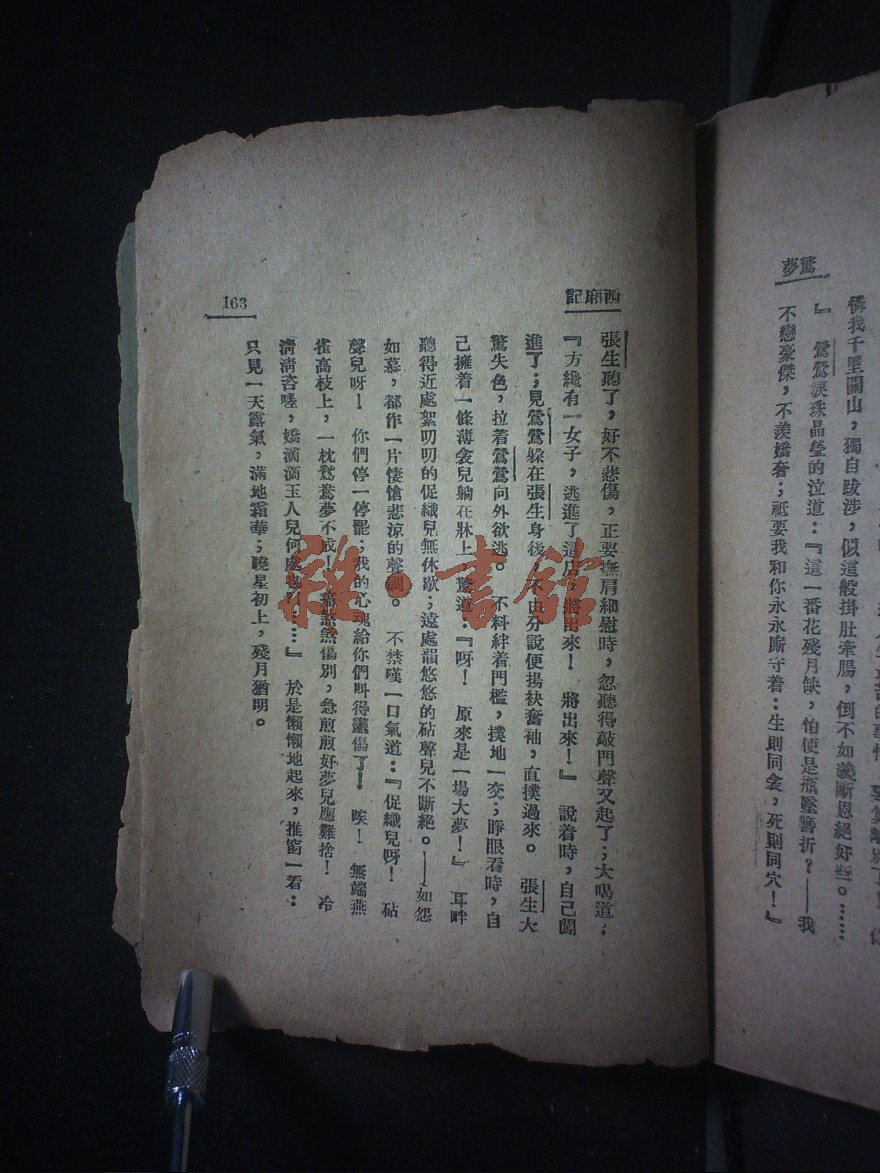 驚夢
憐我千里關山，獨自跋涉，似這般掛肚牽腸，倒不如義斷恩絕好些。……
』鶯鶯淚珠晶瑩的泣道：『這一番花殘月缺，怕便是瓶墜簪折？——我
不戀豪傑，不羨嬌奢；祇要我和你永永廝守着：生則同衾，死則同穴！』
西廂記
張生聽了，好不悲傷，正要撫肩細慰時，忽聽得敲門聲又起了；大喝道：
『方纔有一女子，逃進了這店，將出來！將出來！』說着時，自己闖
進了；見鶯鶯躲在張生身後，不由分說便揚袂奮袖，直撲過來。張生大
驚失色，拉着鶯鶯向外欲逃。不料絆着門檻，撲地一交；睜眼看時，自
己擁着一條薄衾兒躺在牀上，驚道：『呀！原來是一場大夢！』耳畔
聽得近處絮叨叨的促織兒無休歇；遠處韻悠悠的砧聲兒不斷絕。——如怨
如慕，都作一片悽愴悲涼的聲調。不禁嘆一口氣道：『促織兒呀！砧
聲兒呀！你們停一停罷；我的心魂給你們叫得靈傷了！唉！無端燕
雀高枝上，一枕鴛鴦夢不成！痛煞煞傷別，急煎煎好夢兒應難捨！冷
清清咨嗟，嬌滴滴玉人兒何處也！……』於是懶懶地起來，推窗一看：
只見一天露氣，滿地霜華；曉星初上，殘月猶明。
163
雜·書館